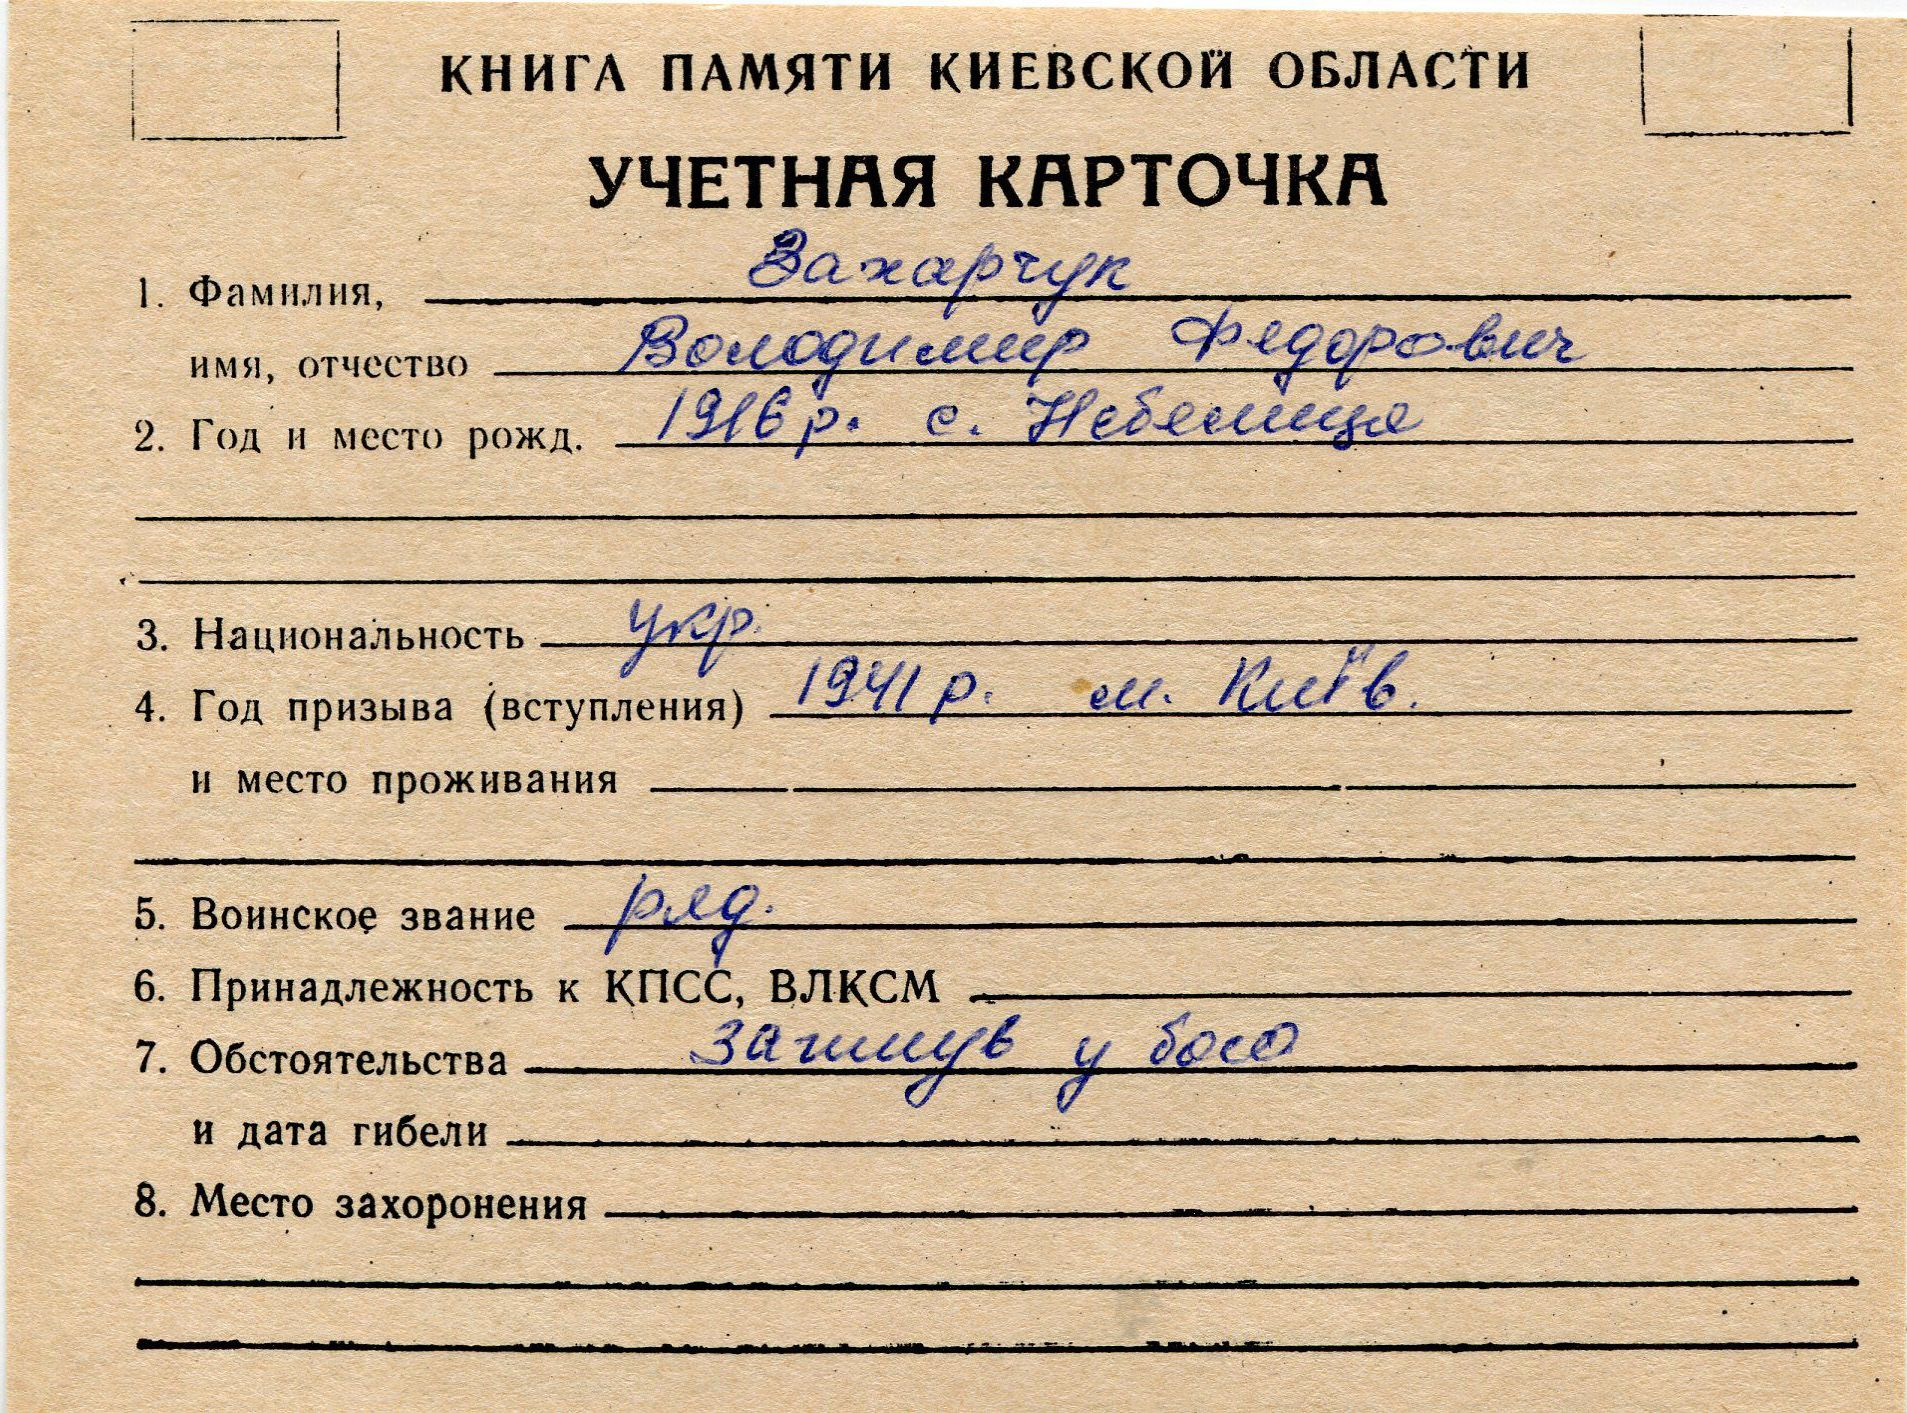 КНИГА ПАМЯТИ КИЕВСКОЙ ОБЛАСТИ
УЧЕТНАЯ КАРТОЧКА
1. Фамилия, Захарчук
имя, отчество Володимир Федорович
2. Год и место рожд. 1916 р. с. Небелиця
3. Национальность укр.
4. Год призыва (вступления) 1941 р. м. Київ.
и место проживания
5. Воинское звание ряд.
6. Принадлежность к КПСС, ВЛКСМ
7. Обстоятельства загинув у бою
и дата гибели
8. Место захоронения